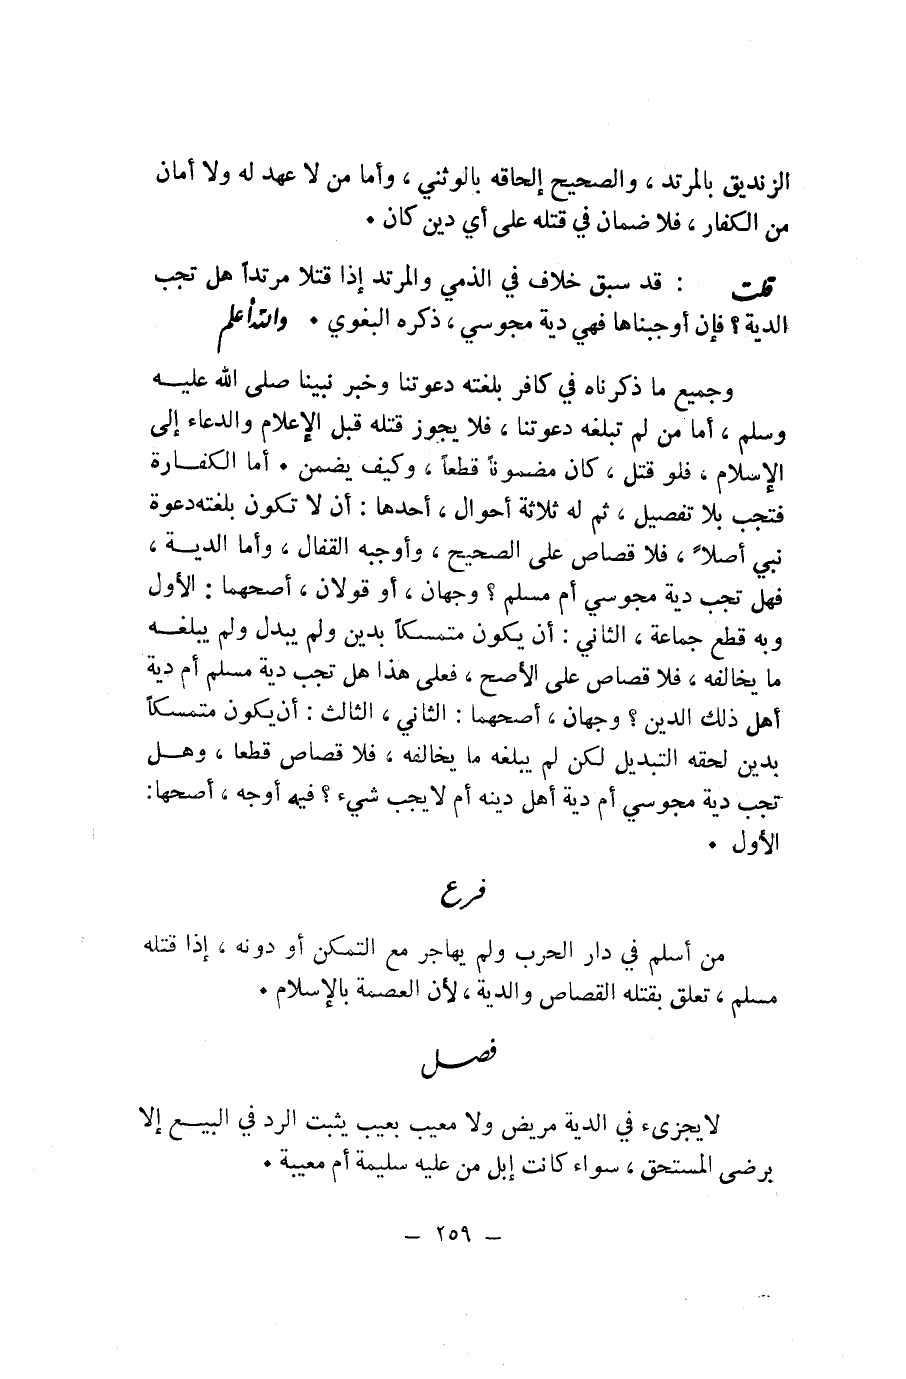 الزنديق بالمرتد ، والصحيح إلحاقه بالوثني ، وأما من لا عهد له ولا أمان
من الكفار ، فلا ضمان في قتله على أي دين كان .
قلت : قد سبق خلاف في الذمي والمرتد إذا قتلا مرتداً هل تجب
الدية ؟ فإن أوجبناها فهي دية مجوسي ، ذكره البغوي . والله أعلم
وجميع ما ذكرناه في كافر بلغته دعوتنا وخبر نبينا صلى الله عليـــه
وسلم ، أما من لم تبلغه دعوتنا ، فلا يجوز قتله قبل الإعلام والدعاء إلى
الإسلام ، فلو قتل ، كان مضموناً قطعاً ، وكيف يضمن . أما الكفــارة
فتجب بلا تفصيل ، ثم له ثلاثة أحوال ، أحدها : أن لا تكون بلغته دعوة
نبي أصلاً ، فلا قصاص على الصحيح ، وأوجبه القفال ، وأما الديــة ،
فهل تجب دية مجوسي أم مسلم ؟ وجهان ، أو قولان ، أصحهما : الأول
وبه قطع جماعة ، الثاني : أن يكون متمسكاً بدين ولم يبدل ولم يبلغـــه
ما يخالفه ، فلا قصاص على الأصح ، فعلى هذا هل تجب دية مسلم أم دية
أهل ذلك الدين ؟ وجهان ، أصحهما : الثاني ، الثالث : أن يكون متمسكاً
بدين لحقه التبديل لكن لم يبلغه ما يخالفه ، فلا قصاص قطعا ، وهــل
تجب دية مجوسي أم دية أهل دينه أم لا يجب شيء ؟ فيه أوجه ، أصحها:
الأول .
فرع
من أسلم في دار الحرب ولم يهاجر مع التمكن أو دونه ، إذا قتله
مسلم ، تعلق بقتله القصاص والدية ، لأن العصمة بالإسلام .
فصـــل
لا يجزىء في الدية مريض ولا معيب بعيب يثبت الرد في البيـــع إلا
برضى المستحق ، سواء كانت إبل من عليه سليمة أم معيبة .
– ٢٥٩ –